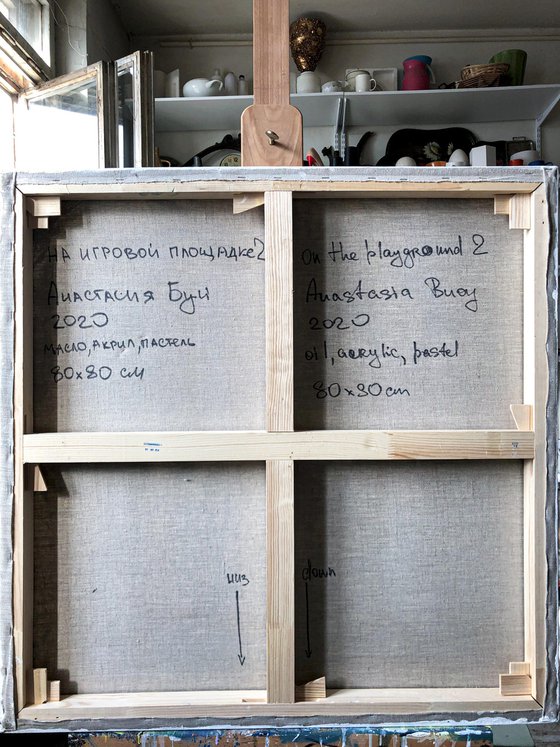 НА ИГРОВОЙ ПЛОЩАДКЕ 2
Анастасия Буй
2020
масло, акрил, пастель
80x80 см
On the playground 2
Anastasia Buoy
2020
oil, acrylic, pastel
80x80 cm
низ
down